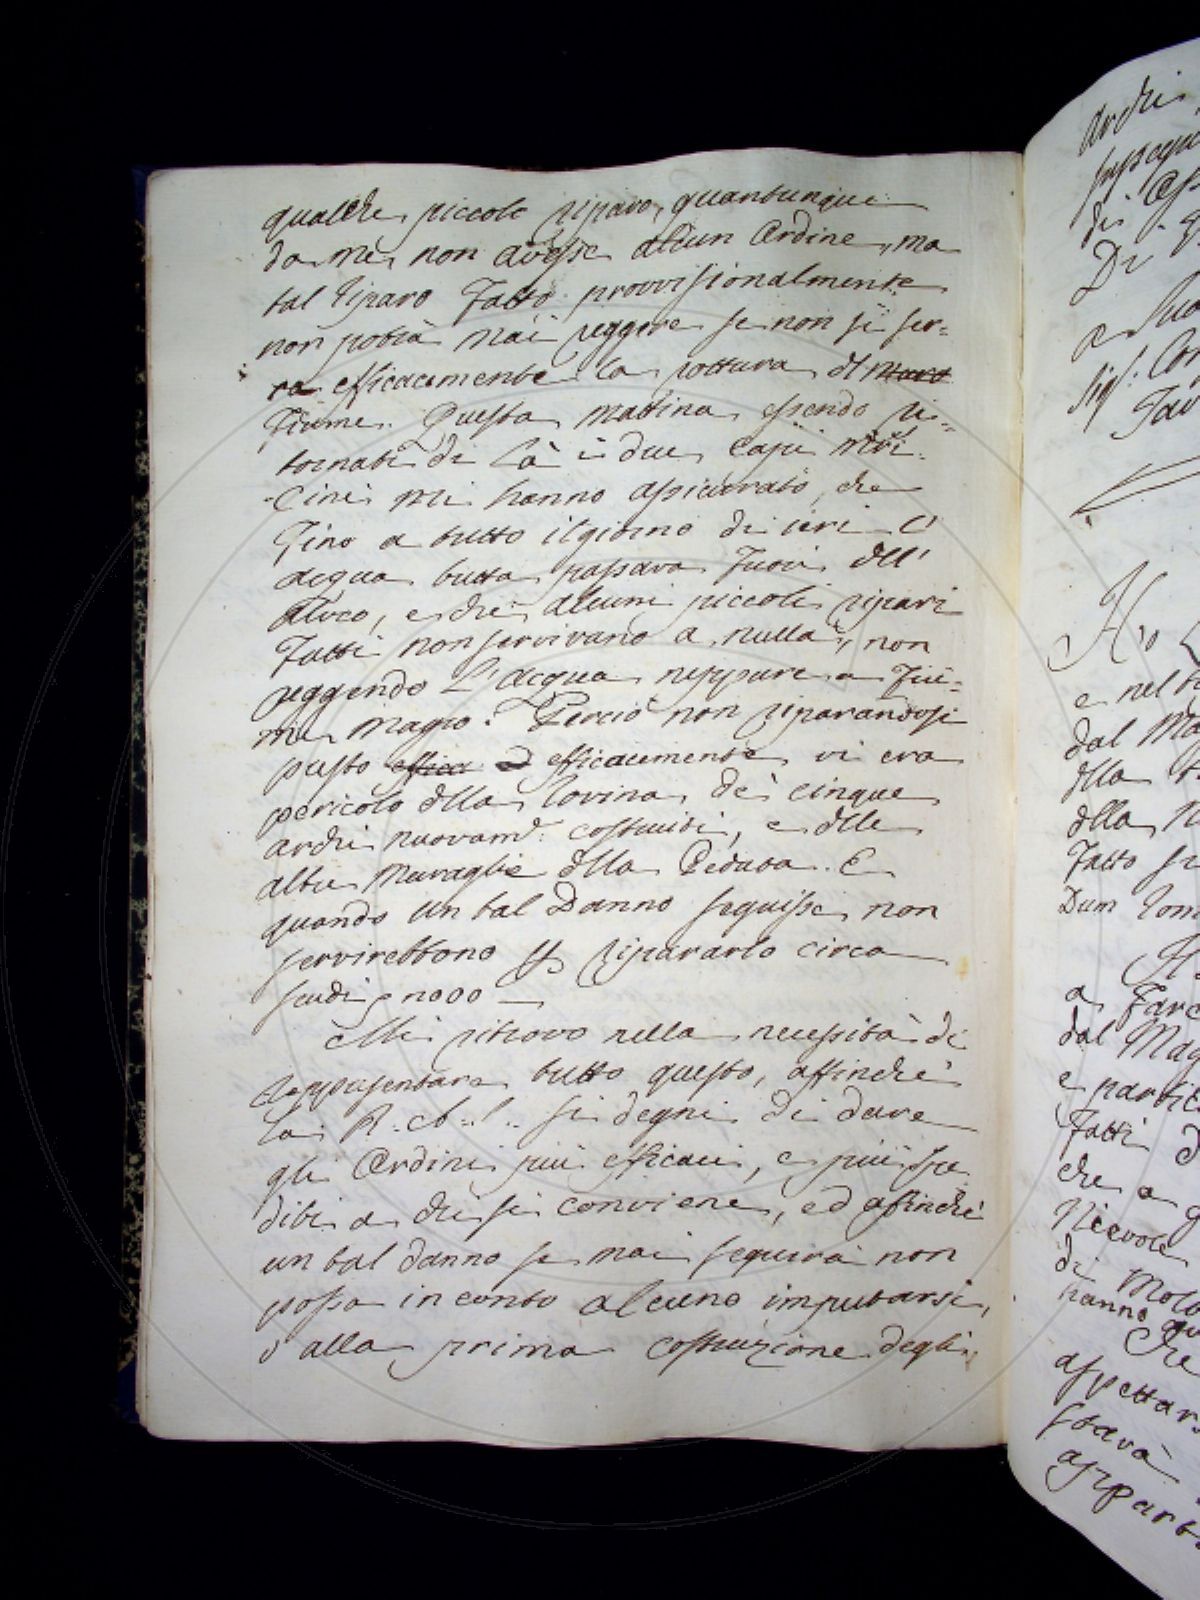 qualche piccolo riparo, quantunque
da me non avesse alcun Ordine, ma
tal riparo fatto provvisionalmente
non potrà mai reggere se non si ser-
ra efficacemente la rottura del muro
Fiume. Questa mattina essendo ri-
tornati di là i due Capi Mri.
Cini mi hanno assicurato, che
fino a tutto il giorno di ieri l'
acqua tutta passava fuori dell'
alveo, e che alcuni piccoli ripari
fatti non servivano a nulla, non
reggendo l'acqua neppure a fiu-
me magro. Perciò non riparandosi
presto effica ed efficacemente vi era
pericolo della rovina de' cinque
archi nuovam.e costruiti, e delle
altre muraglie della Pedata. E
quando un tal Danno seguisse non
servirebbono p ripararlo circa
scudi
Mi ritrovo nella necessità di
rappresentare tutto questo, affinché
la R. si degni di dare
gli Ordini più efficaci, e più spe
diti a chi si conviene, ed affinché
un tal danno se mai seguirà non
possa in conto alcuno imputarsi,
o alla prima costruzione degli
Archi
di
Di
a
Sig.
Ho
e nel
dal
della
della
fatto
Dum
a Fare
dal Mag
e
fatti
che a
Nievole
di
hanno
Che
aspettar
starà